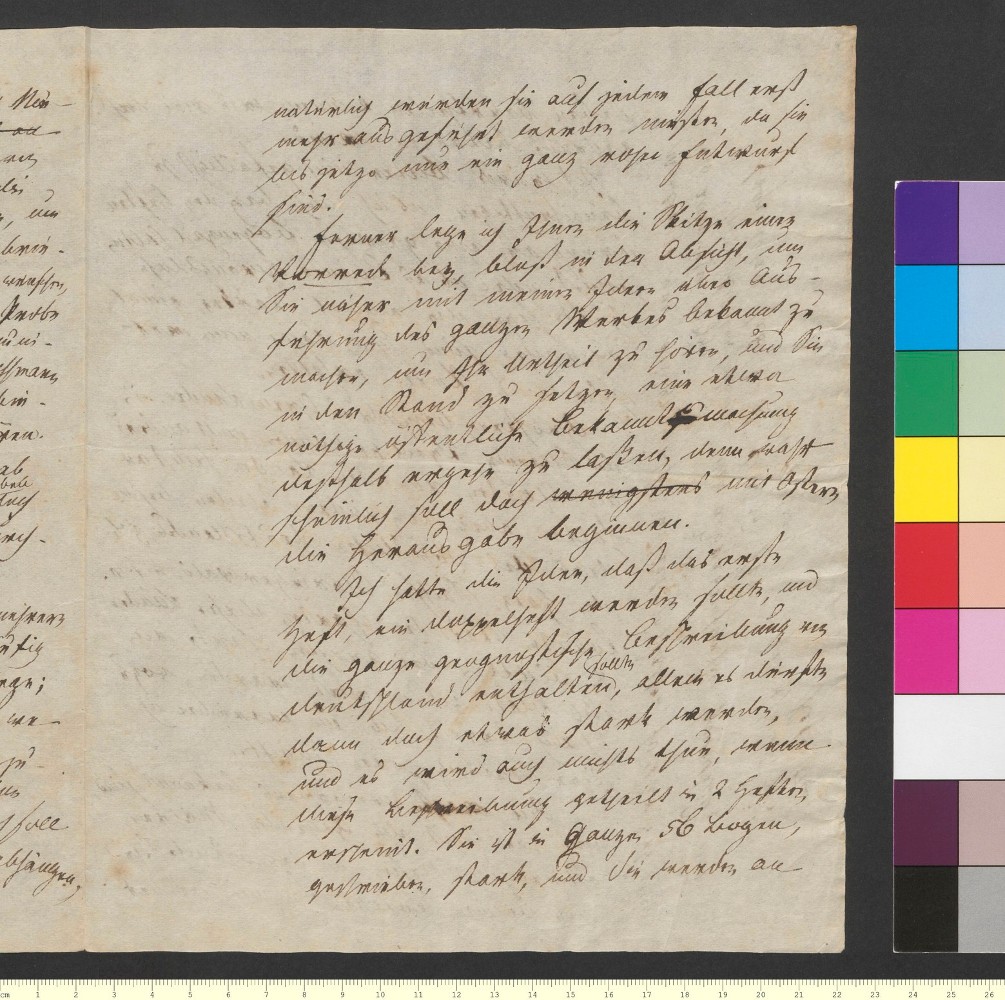 natürlich würden sie auf jeden Fall erst
mehr ausgeführt werden müssen, da sie
bis jetzo nur ein ganz roher Entwurf
sind.
Ferner lege ich Ihnen die Skitze einer
Vorrede bey, bloß in der Absicht, um
Sie näher mit meinen Ideen über Aus-
führung des ganzen Werkes bekannt zu
machen, um Ihr Urtheil zu hören, und Sie
in den Stand zu setzen, eine etwa
nöthige öffentliche Bekanntmachung
deshalb ergehn zu laßen, denn wahr
scheinlich soll doch wenigstens mit Ostern
die Herausgabe beginnen.
Ich hatte die Idee, daß das erste
Heft, ein doppelheft werden sollte, und
die ganze geognostische Beschreibung von
deutschland enthalten sollte, allein es dürfte
dann doch etwas stark werden,
und es wird auch nichts thun, wenn
diese Beschreibung getheilt in 2 Heften,
erscheint. Sie ist in Ganzen 56 bogen,
geschrieben, stark, und Sie werden an-
soll
abhängen,
mehrere